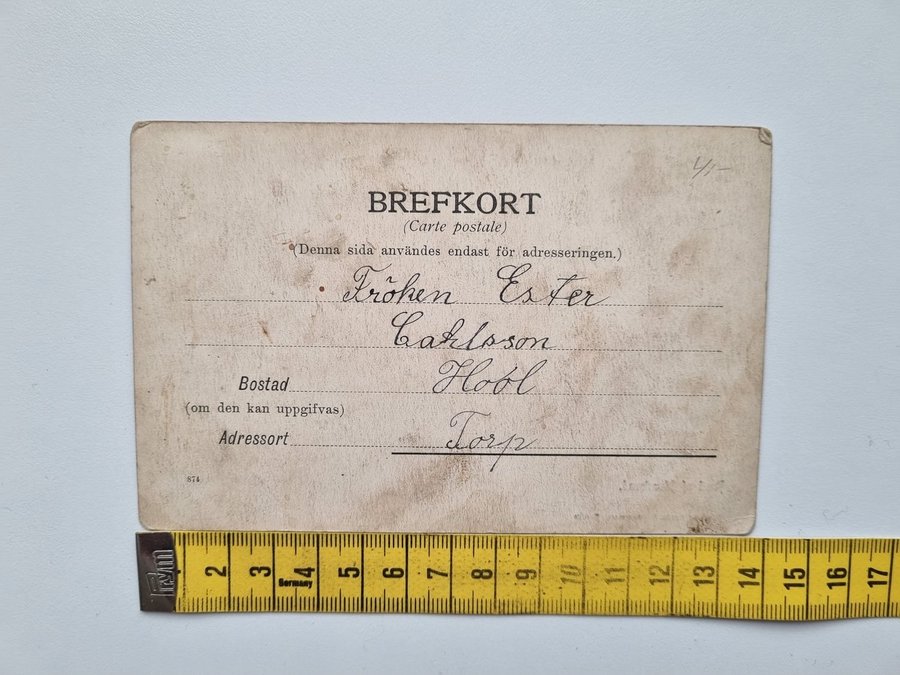 41-
BREFKORT
(Carte postale)
(Denna sida användes endast för adresseringen.)
Fröken Ester
Carlsson
Bostad
(om den kan uppgifvas)
Adressort Torp
874
Prym
2 3 4 5 6 7 8 9 10 11 12 13 14 15 16 17
Germany